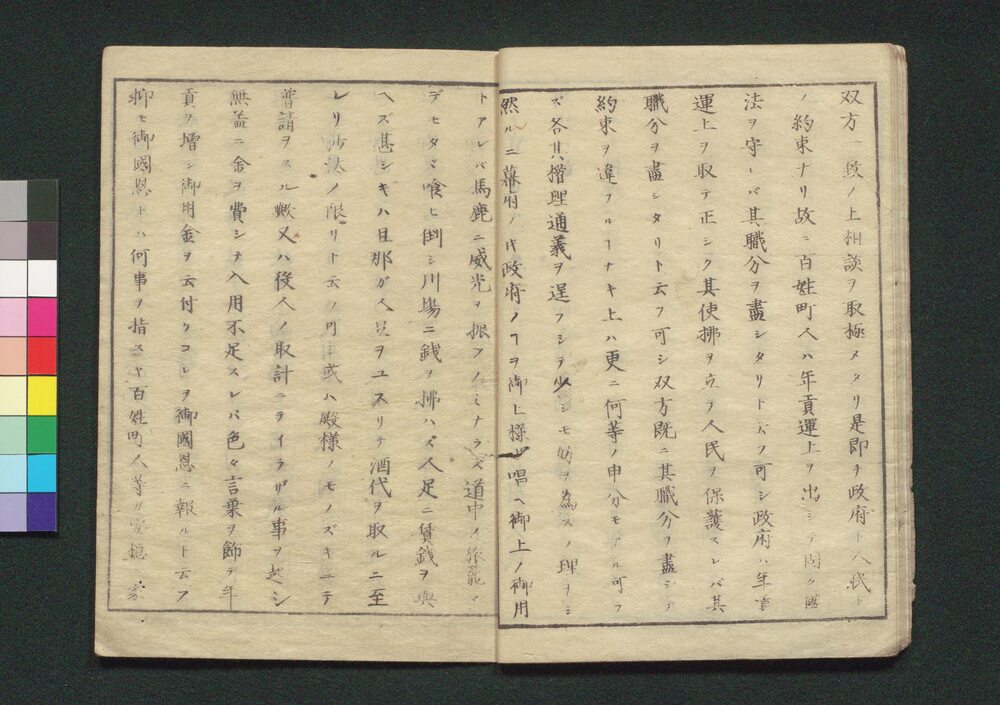 双方一致ノ上相談ヲ取極メタリ是即チ政府ト人民ト
ノ約束ナリ故ニ百姓町人ハ年貢運上ヲ出シテ固ク國
法ヲ守レバ其職分ヲ盡シタリト云フ可シ政府ハ年貢
運上ヲ取テ正シク其使拂ヲ立テ人民ヲ保護スレバ其
職分ヲ盡シタリト云フ可シ双方既ニ其職分ヲ盡シテ
約束ヲ違フルヿナキ上ハ更ニ何等ノ申分モアル可ラ
ズ各其權理通義ヲ逞フシテ少シモ妨ヲ為スノ理ナシ
然ルニ幕府ノ時政府ノヿヲ御上様ト唱ヘ御上ノ御用
トアレバ馬鹿ニ威光ヲ振フノミナラズ道中ノ旅籠マ
デモタヾ喰ヒ倒シ川場ニ銭ヲ拂ハズ人足ニ賃銭ヲ與
ヘズ甚シキハ旦那ガ人足ヲユスリテ酒代ヲ取ルニ至
レリ沙汰ノ限リト云フ可シ或ハ殿様ノモノズキニテ
普請ヲスル歟又ハ役人ノ取計ニテイラザル事ヲ起シ
無益ニ金ヲ費シテ入用不足スレバ色々言葉ヲ飾テ年
貢ヲ増シ御用金ヲ云付ケコレヲ御國恩ニ報ルト云フ
抑モ御國恩トハ何事ヲ指スヤ百姓町人等ガ安穏ニ家